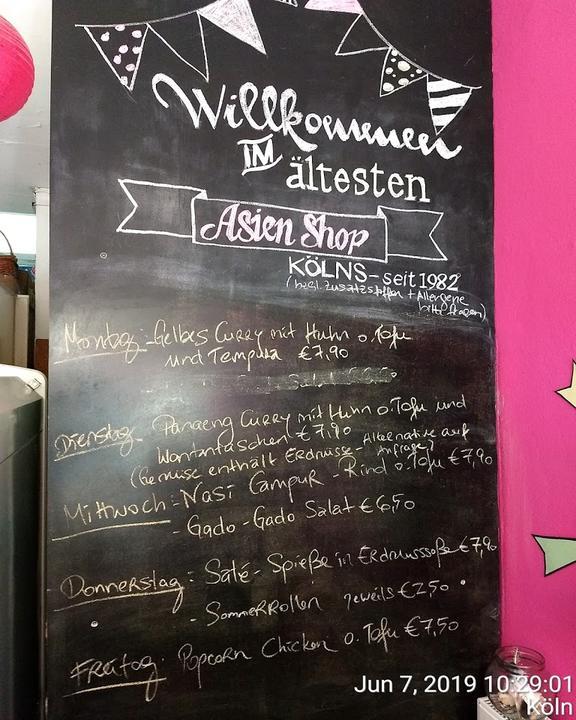 Willkommen
IM
ältesten
Asien Shop
KÖLNS - seit 1982
(bezl. Zusatzstoffen + Allergene
bitte fragen)
Montag - Gelbes Curry mit Huhn o. Tofu
und Tempura €7,90
Dienstag - Panaeng Curry mit Huhn o. Tofu und
Wantantaschen €7,90
(Gemüse enthält Erdnüsse - Alternative auf
Anfrage)
Mittwoch: - Nasi Campur - Rind o. Tofu €7,90
- Gado-Gado Salat €6,50
Donnerstag: Saté-Spieße in Erdnusssoße €7,90
- Sommerrollen jeweils €2,50
Freitag: Popcorn Chicken o. Tofu €7,50
Jun 7, 2019 10:29:01
Köln